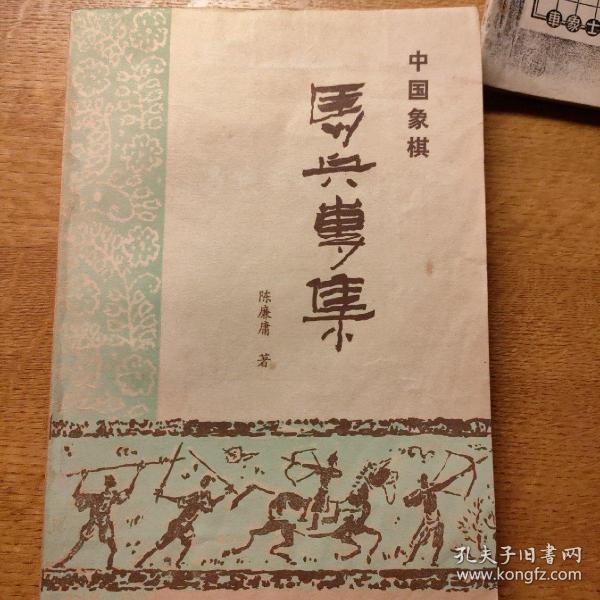 中国象棋
馬兵專集
陈廉庸 著
車象士
孔夫子旧书网
www.kongfz.com